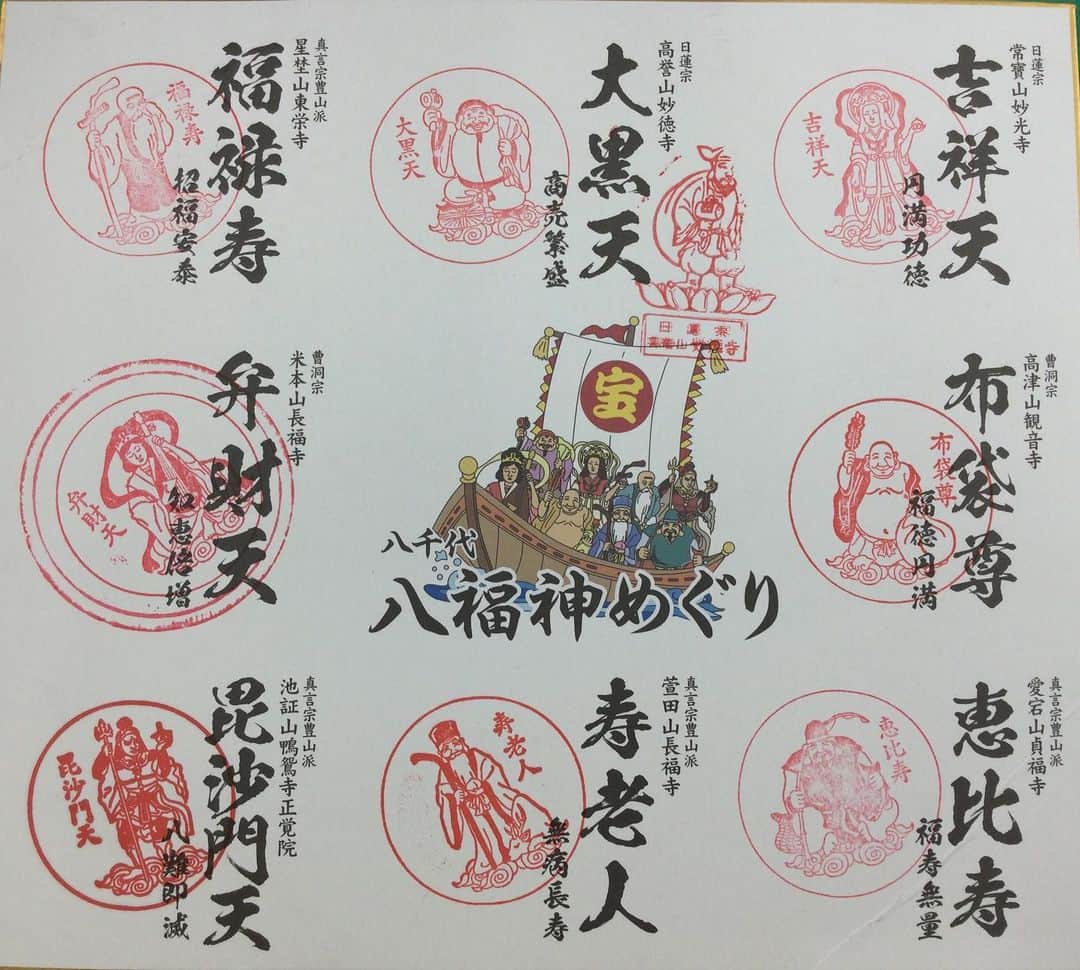 日蓮宗
常寶山妙光寺
吉祥天
円満功徳
吉祥天
日蓮宗
高誉山妙徳寺
大黒天
商売繁盛
大黒天
真言宗豊山派
星埜山東栄寺
福禄寿
招福安泰
福禄寿
曹洞宗
高津山観音寺
布袋尊
福徳円満
布袋尊
日蓮宗
高誉山妙徳寺
宝
八千代
八福神めぐり
曹洞宗
米本山長福寺
弁財天
知恵倍増
弁財天
真言宗豊山派
愛宕山貞福寺
恵比寿
福寿無量
恵比寿
真言宗豊山派
萱田山長福寺
寿老人
無病長寿
寿老人
真言宗豊山派
池証山鴨鴛寺正覚院
毘沙門天
八難即滅
毘沙門天